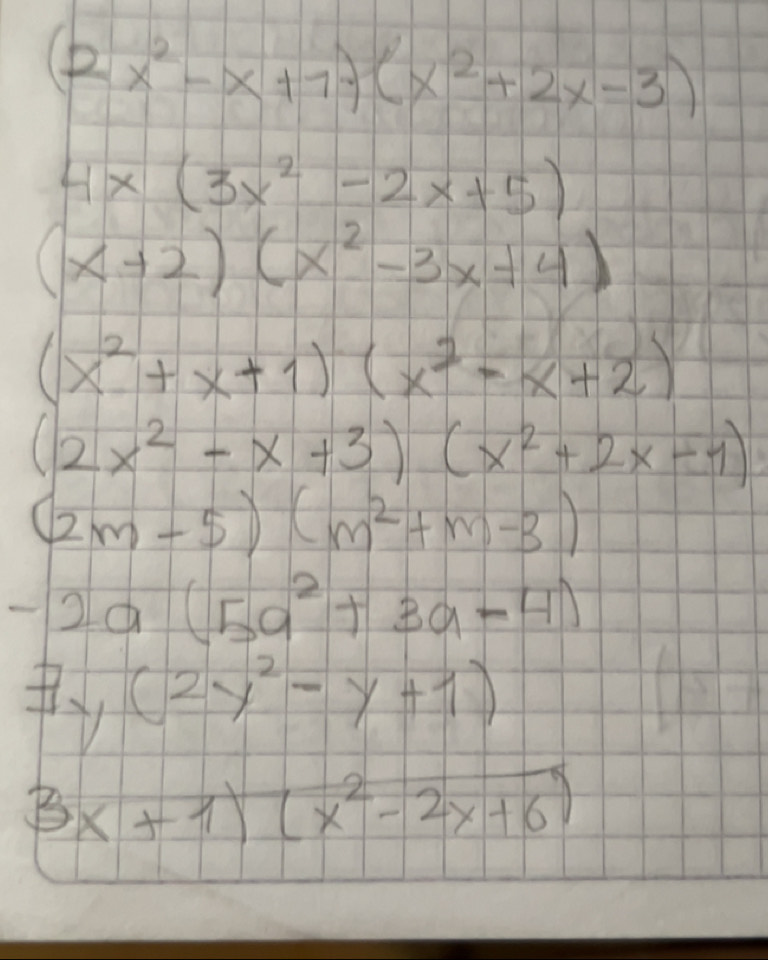 (2x² - x + 1)(x² + 2x - 3)
4x (3x² - 2x + 5)
(x + 2) (x² - 3x + 4)
(x² + x + 1) (x² - x + 2)
(2x² - x + 3) (x² + 2x - 1)
(2m - 5) (m² + m - 3)
- 2a (5a² + 3a - 4)
7y (2y² - y + 1)
3x + 1) (x² - 2x + 6)